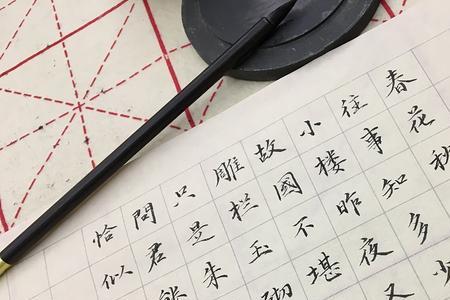 春花秋
往事知多少
小楼昨夜又
故國不堪
雕栏玉砌
只是朱
問君能
恰似